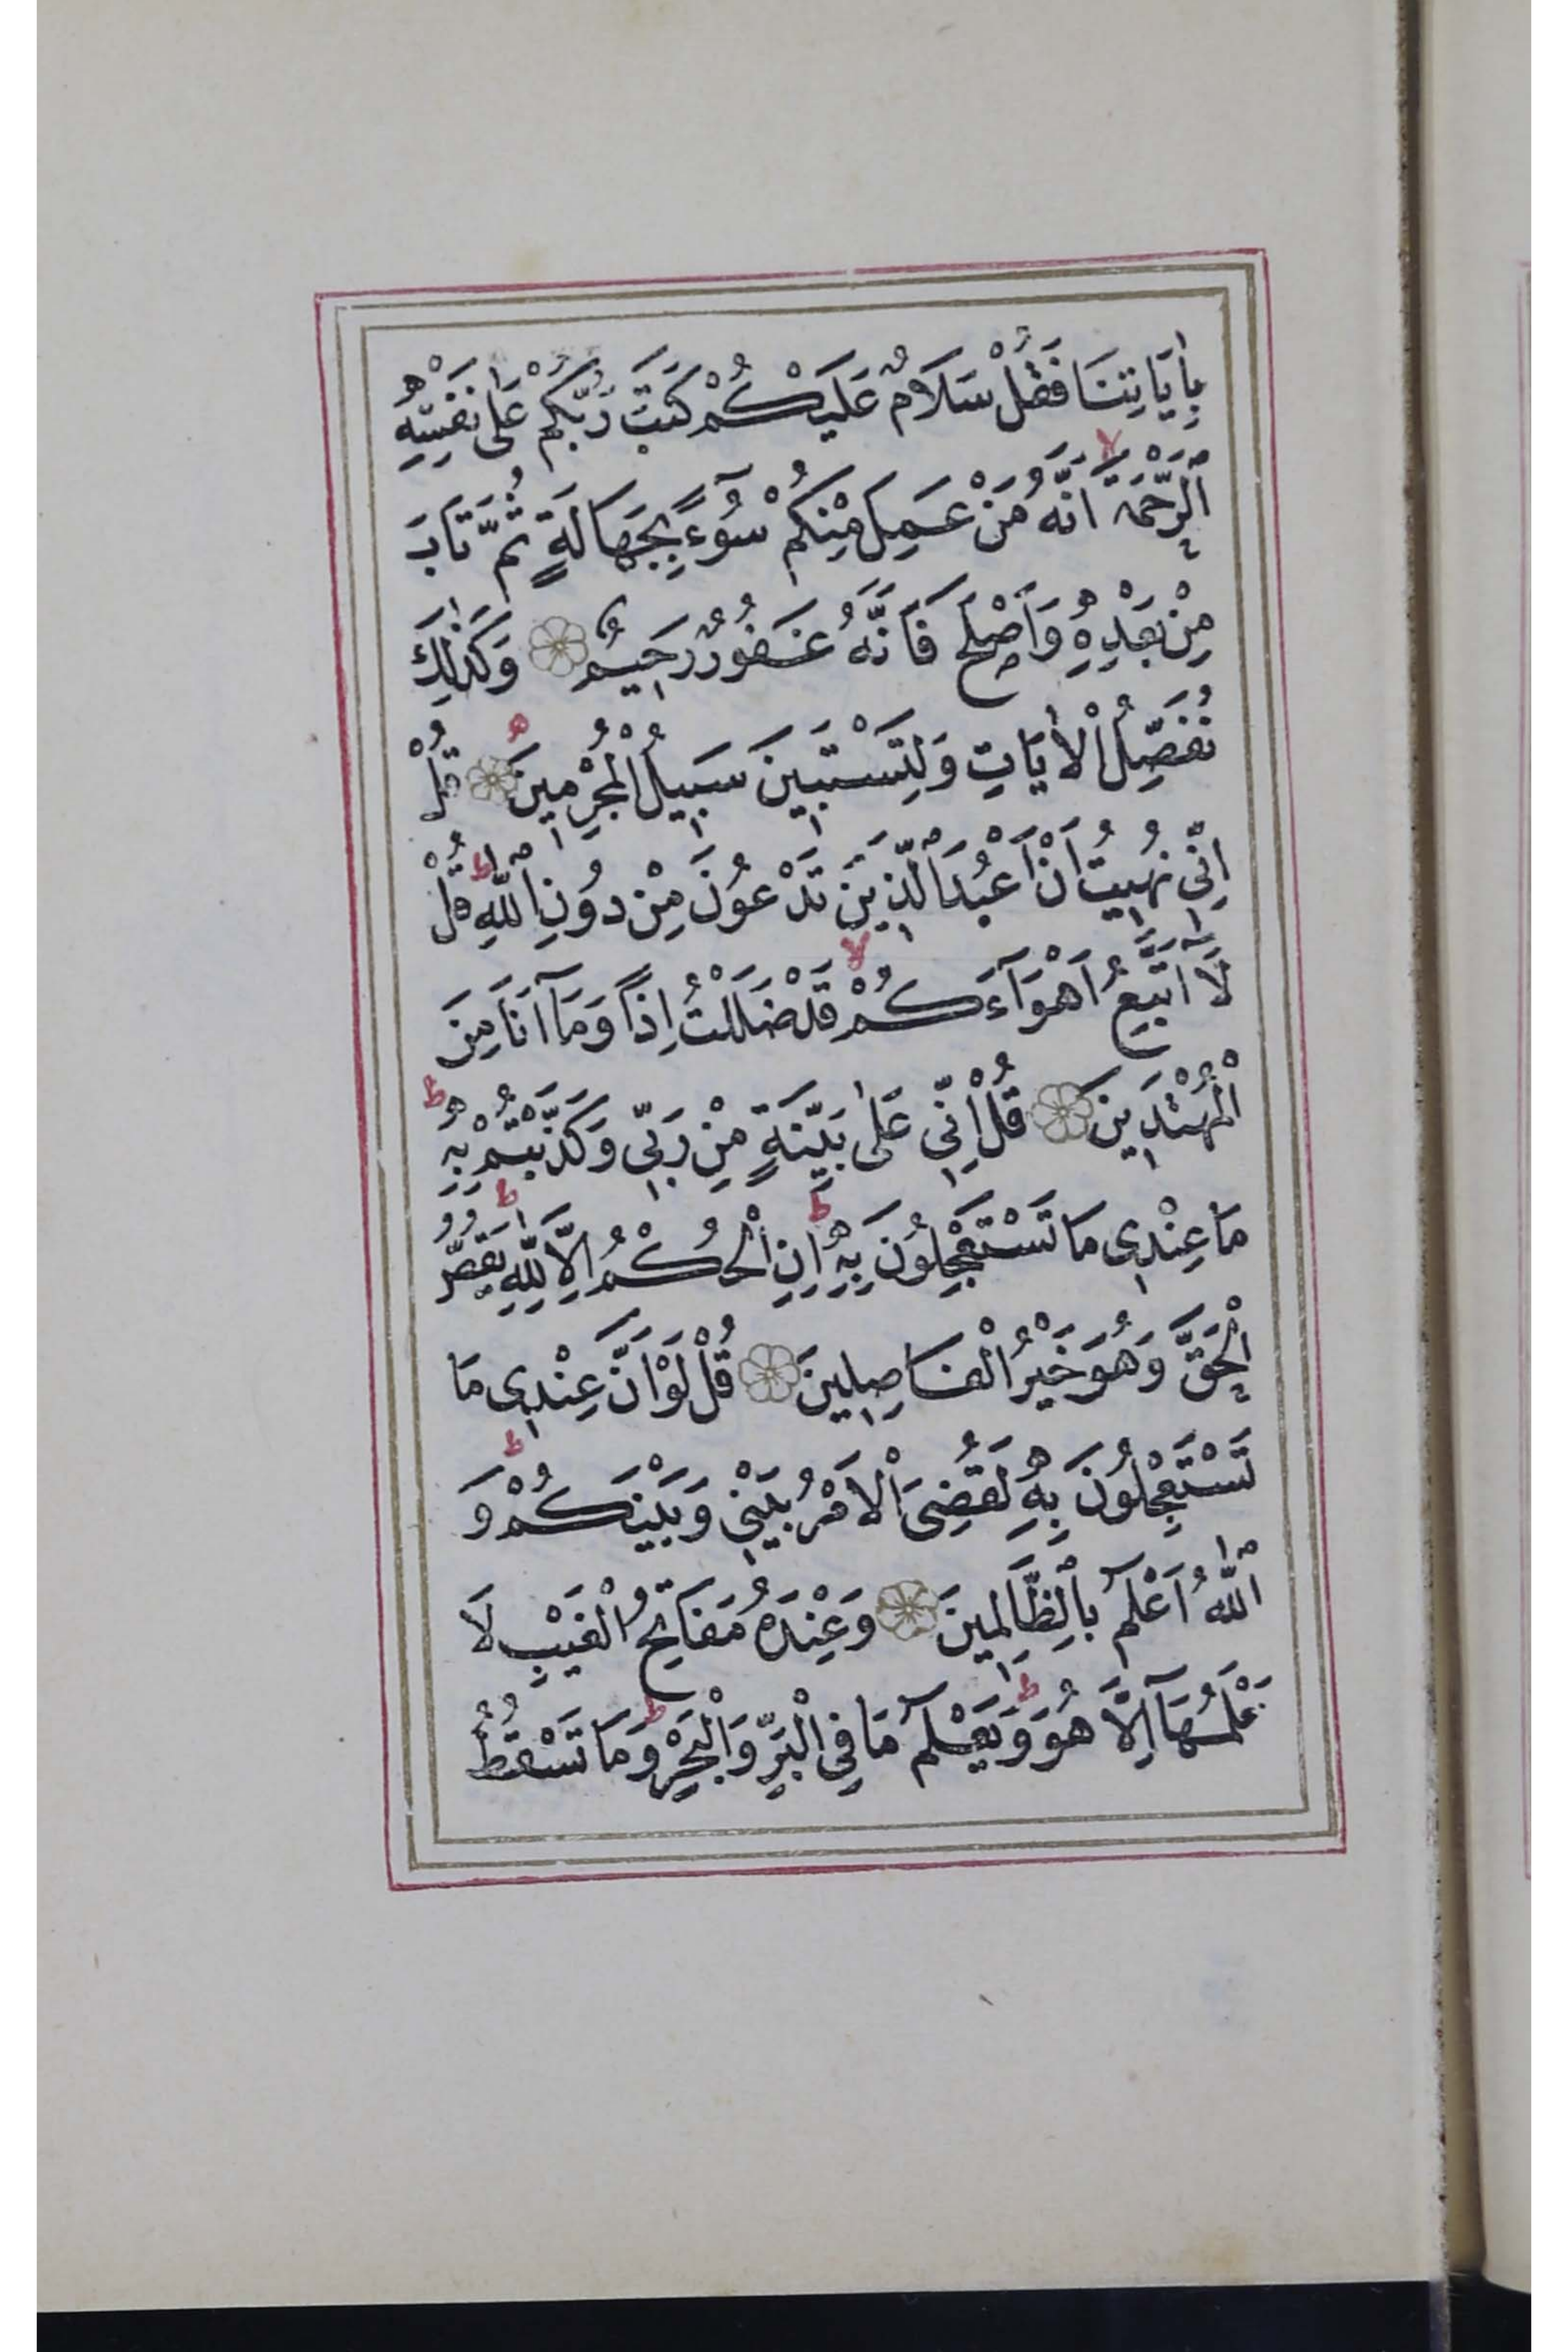 بِاٰيَاتِنَا فَقُلْ سَلَامٌ عَلَيْكُمْ كَتَبَ رَبُّكُمْ عَلٰى نَفْسِهِ
الرَّحْمَةَ اَنَّهُ مَنْ عَمِلَ مِنْكُمْ سُوٓءًا بِجَهَالَةٍ ثُمَّ تَابَ
مِنْ بَعْدِهِ وَاَصْلَحَ فَاَنَّهُ غَفُورٌ رَحِيمٌ وَكَذٰلِكَ
نُفَصِّلُ الْاٰيَاتِ وَلِتَسْتَبِينَ سَبِيلُ الْمُجْرِمِينَ قُلْ
اِنِّي نُهِيتُ اَنْ اَعْبُدَ الَّذِينَ تَدْعُونَ مِنْ دُونِ اللّٰهِ قُلْ
لَآ اَتَّبِعُ اَهْوَآءَكُمْ قَدْ ضَلَلْتُ اِذًا وَمَآ اَنَا مِنَ
الْمُهْتَدِينَ قُلْ اِنِّي عَلٰى بَيِّنَةٍ مِنْ رَبِّي وَكَذَّبْتُمْ بِهِ
مَا عِنْدِي مَا تَسْتَعْجِلُونَ بِهِ اِنِ الْحُكْمُ اِلَّا لِلّٰهِ يَقُصُّ
الْحَقَّ وَهُوَ خَيْرُ الْفَاصِلِينَ قُلْ لَوْ اَنَّ عِنْدِي مَا
تَسْتَعْجِلُونَ بِهِ لَقُضِيَ الْاَمْرُ بَيْنِي وَبَيْنَكُمْ وَ
اللّٰهُ اَعْلَمُ بِالظَّالِمِينَ وَعِنْدَهُ مَفَاتِحُ الْغَيْبِ لَا
يَعْلَمُهَآ اِلَّا هُوَ وَيَعْلَمُ مَا فِي الْبَرِّ وَالْبَحْرِ وَمَا تَسْقُطُ